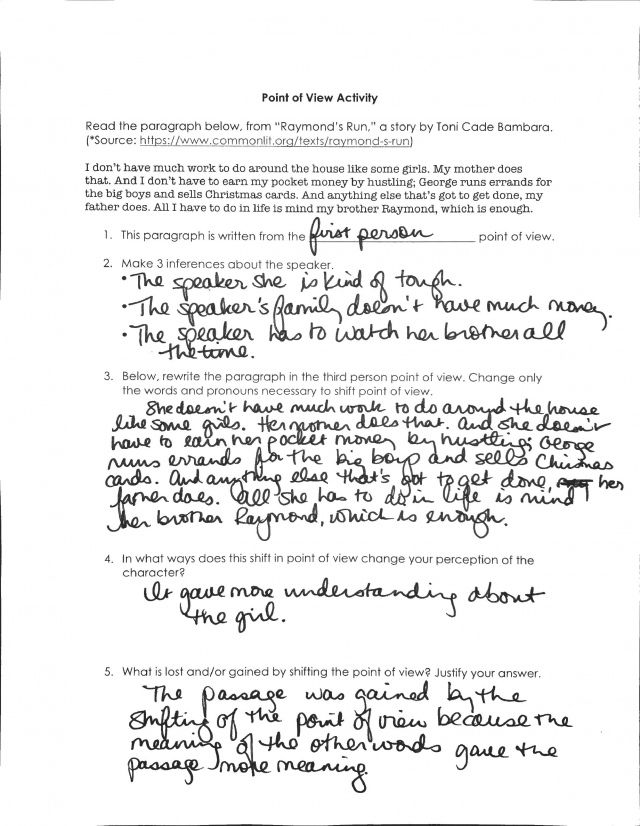 Point of View Activity
Read the paragraph below, from “Raymond’s Run,” a story by Toni Cade Bambara.
(*Source: https://www.commonlit.org/texts/raymond-s-run)
I don’t have much work to do around the house like some girls. My mother does
that. And I don’t have to earn my pocket money by hustling; George runs errands for
the big boys and sells Christmas cards. And anything else that’s got to get done, my
father does. All I have to do in life is mind my brother Raymond, which is enough.
1. This paragraph is written from the first person point of view.
2. Make 3 inferences about the speaker.
• The speaker she is kind of tough.
• The speaker's family doesn't have much money.
• The speaker has to watch her brother all
the time.
3. Below, rewrite the paragraph in the third person point of view. Change only
the words and pronouns necessary to shift point of view.
She doesn't have much work to do around the house
like some girls. Her mother does that. And she doesn't
have to earn her pocket money by hustling; George
runs errands for the big boys and sells Christmas
cards. And anything else that's got to get done, her
father does. All she has to do in life is mind
her brother Raymond, which is enough.
4. In what ways does this shift in point of view change your perception of the
character?
It gave more understanding about
the girl.
5. What is lost and/or gained by shifting the point of view? Justify your answer.
The passage was gained by the
shifting of the point of view because the
meaning of the other words gave the
passage more meaning.